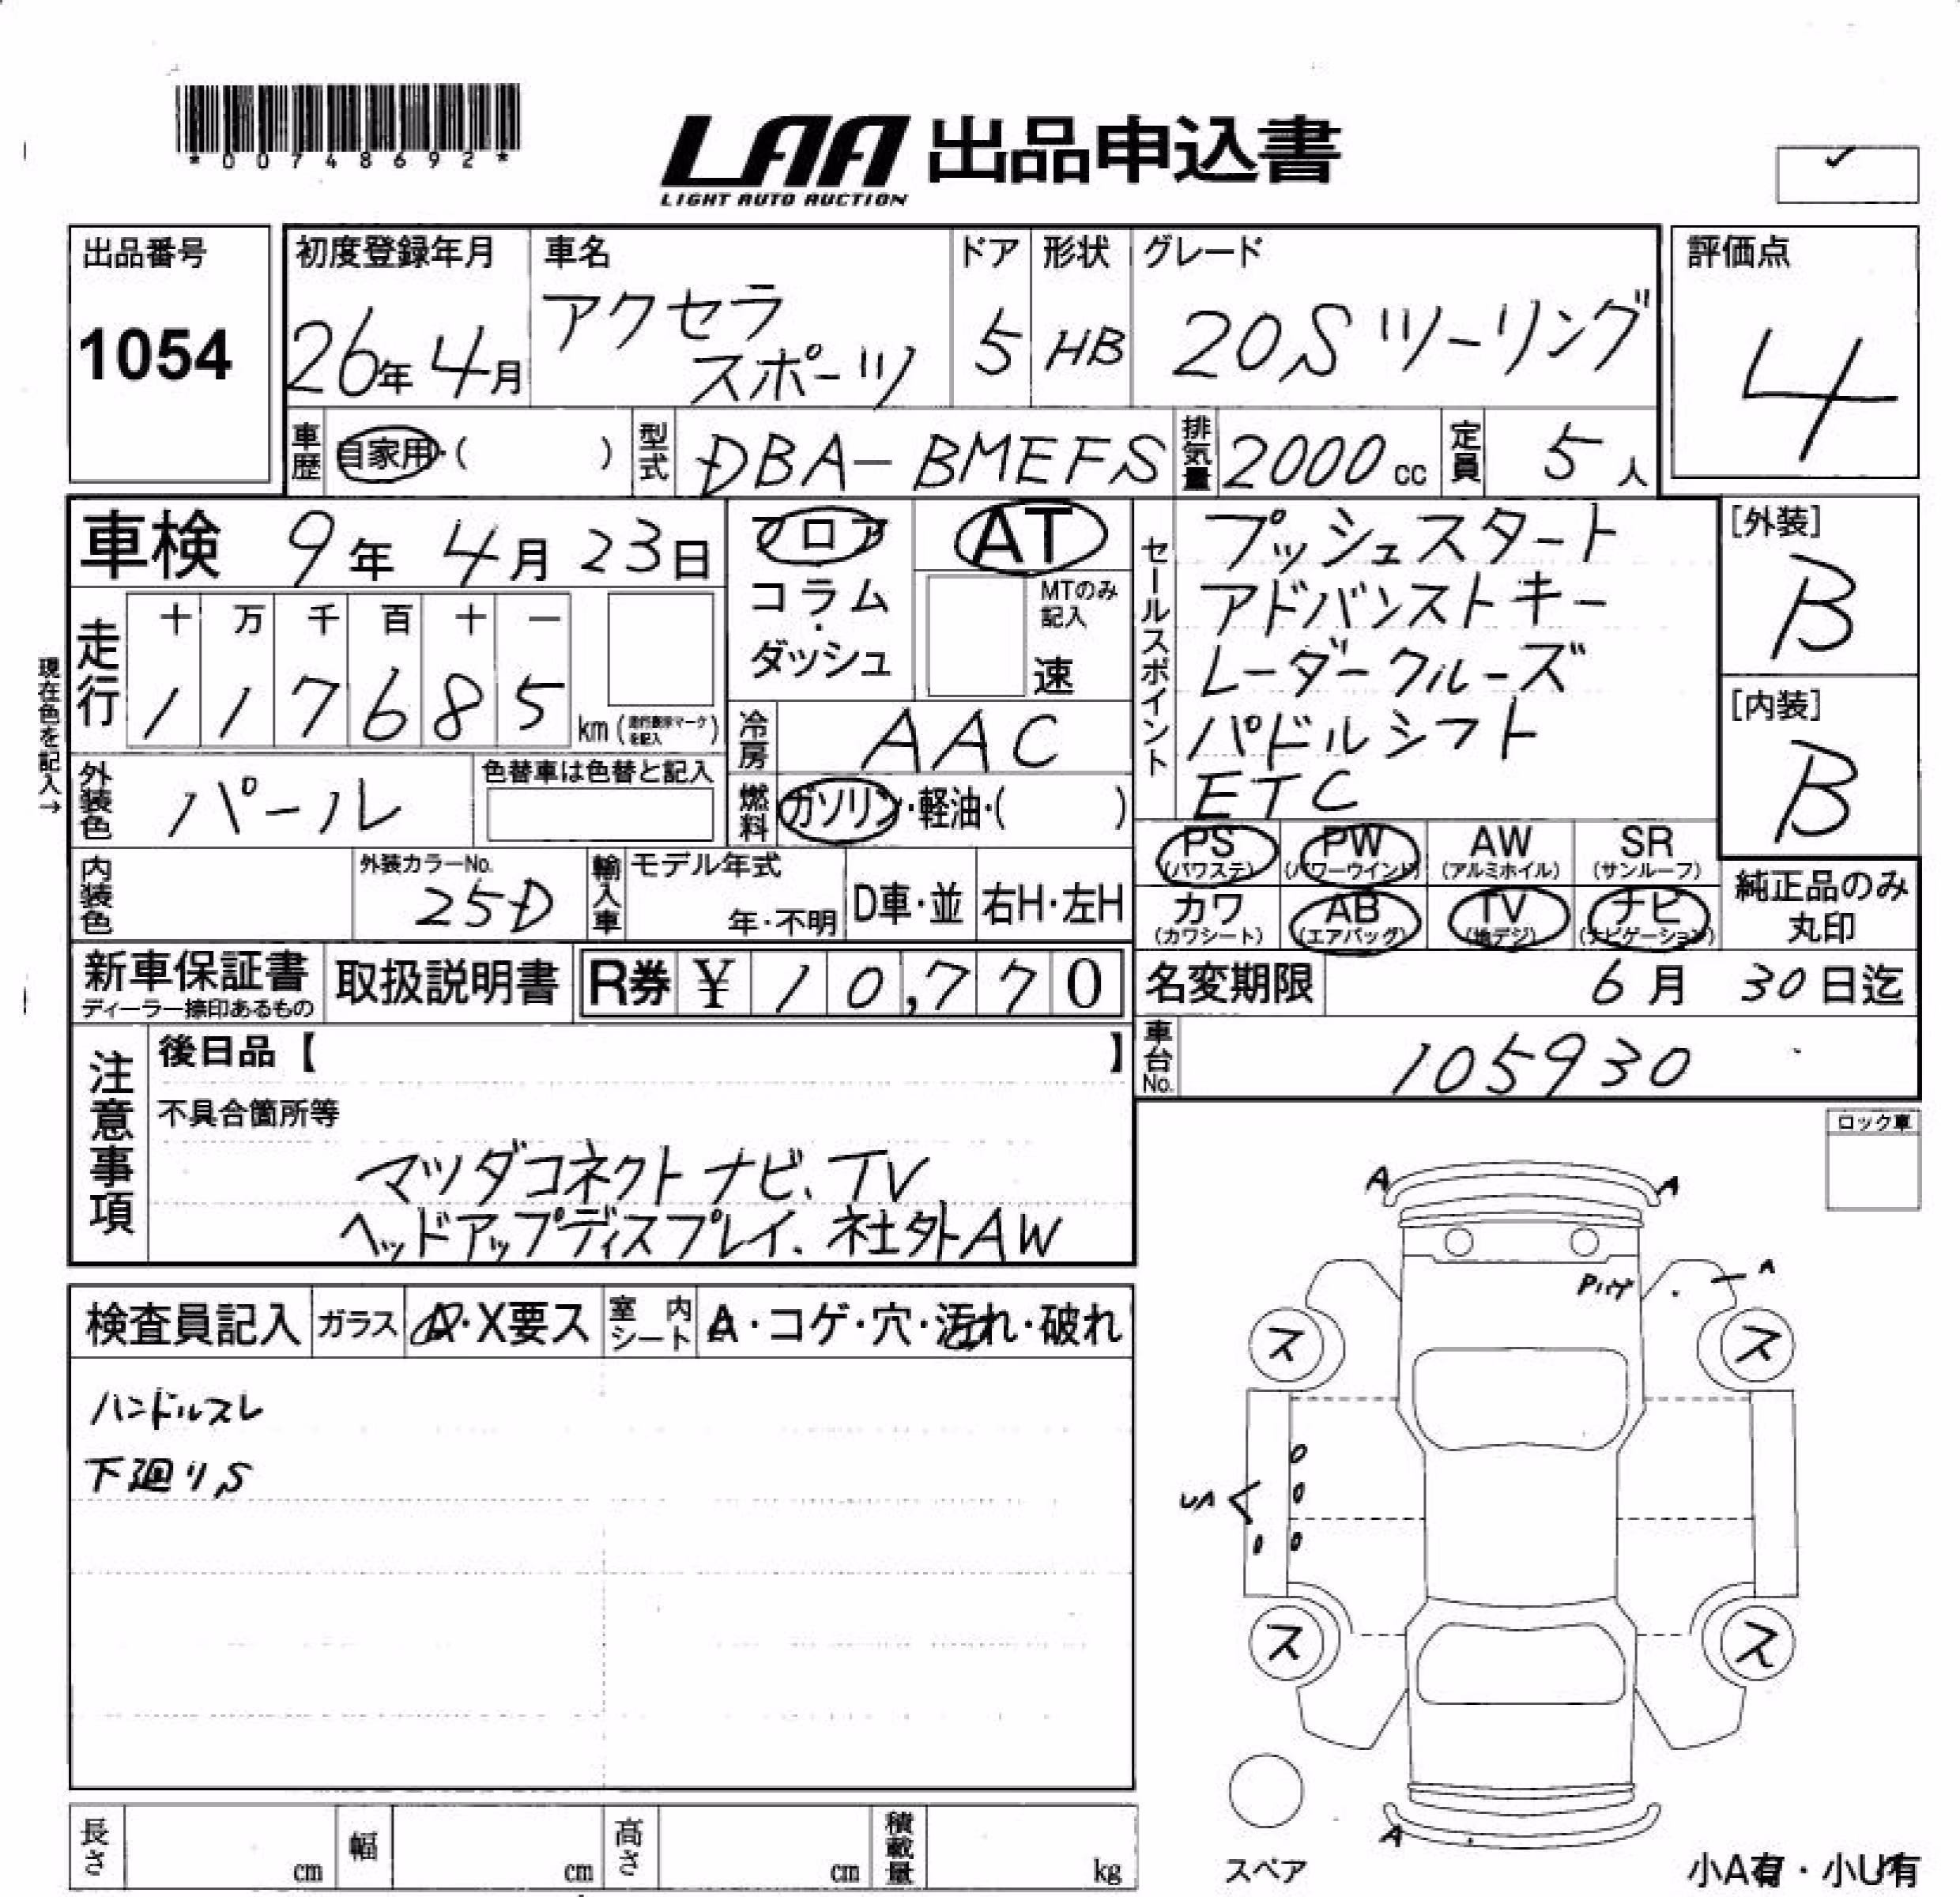 *00748692*
LAA 出品申込書
LIGHT AUTO AUCTION
出品番号
1054
初度登録年月
26年 4月
車名
アクセラ
スポーツ
ドア
5
形状
HB
グレード
20S ツーリング
評価点
4
車歴
自家用・( )
型式
DBA-BMEFS
排気量
2000 cc
定員
5 人
車検 9年 4月 23日
フロア
コラム・
ダッシュ
AT
MTのみ
記入
速
セールスポイント
プッシュスタート
アドバンストキー
レーダークルーズ
パドルシフト
ETC
[外装]
B
[内装]
B
現在色を記入→
走行
十 万 千 百 十 一
1 1 7 6 8 5 km (走行表示マークを記入)
冷房
AAC
外装色
パール
色替車は色替と記入
燃料
ガソリン・軽油・( )
PS (パワステ)
PW (パワーウインド)
AW (アルミホイル)
SR (サンルーフ)
カワ (カワシート)
AB (エアバッグ)
TV (地デジ)
ナビ (ナビゲーション)
純正品のみ
丸印
内装色
外装カラーNo.
25D
輸入車
モデル年式
年・不明
D車・並
右H・左H
新車保証書
ディーラー捺印あるもの
取扱説明書
R券 ¥ 10,770
名変期限 6月 30日迄
車台No.
105930
注意事項
後日品【 】
不具合箇所等
マツダコネクト ナビ、TV
ヘッドアップディスプレイ、社外AW
ロック車
検査員記入
ガラス
A・X要ス
室内シート
A・コゲ・穴・汚れ・破れ
ハンドルスレ
下廻りS
A
A
A
ス
ス
ス
ス
A
スペア
長さ cm
幅 cm
高さ cm
積載量 kg
小A有・小U有